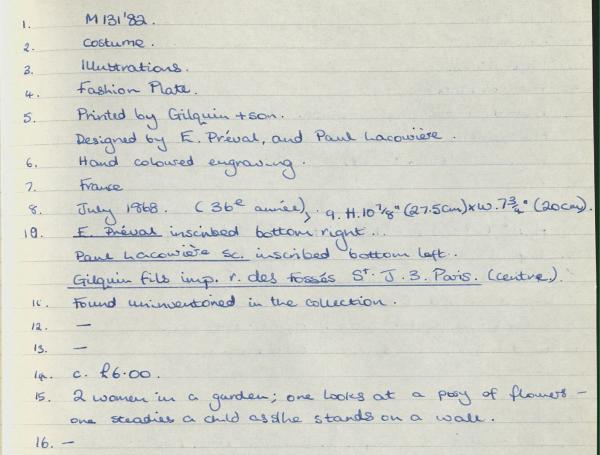 1. M131'82.
2. Costume.
3. Illustrations.
4. Fashion Plate.
5. Printed by Gilquin + son.
Designed by E. Préval, and Paul Lacowière.
6. Hand coloured engraving.
7. France
8. July 1868. (36e année), 9. H. 10 7/8" (27.5cm) x W. 7 3/4" (20cm).
10. E. Préval inscribed bottom right.
Paul Lacowière Sc. inscribed bottom left.
Gilquin fils imp. r. des Fossés St. J. 3. Paris. (centre).
11. Found uninventoried in the collection.
12. —
13. —
14. c. £6.00.
15. 2 women in a garden; one looks at a posy of flowers –
one steadies a child as s/he stands on a wall.
16. —